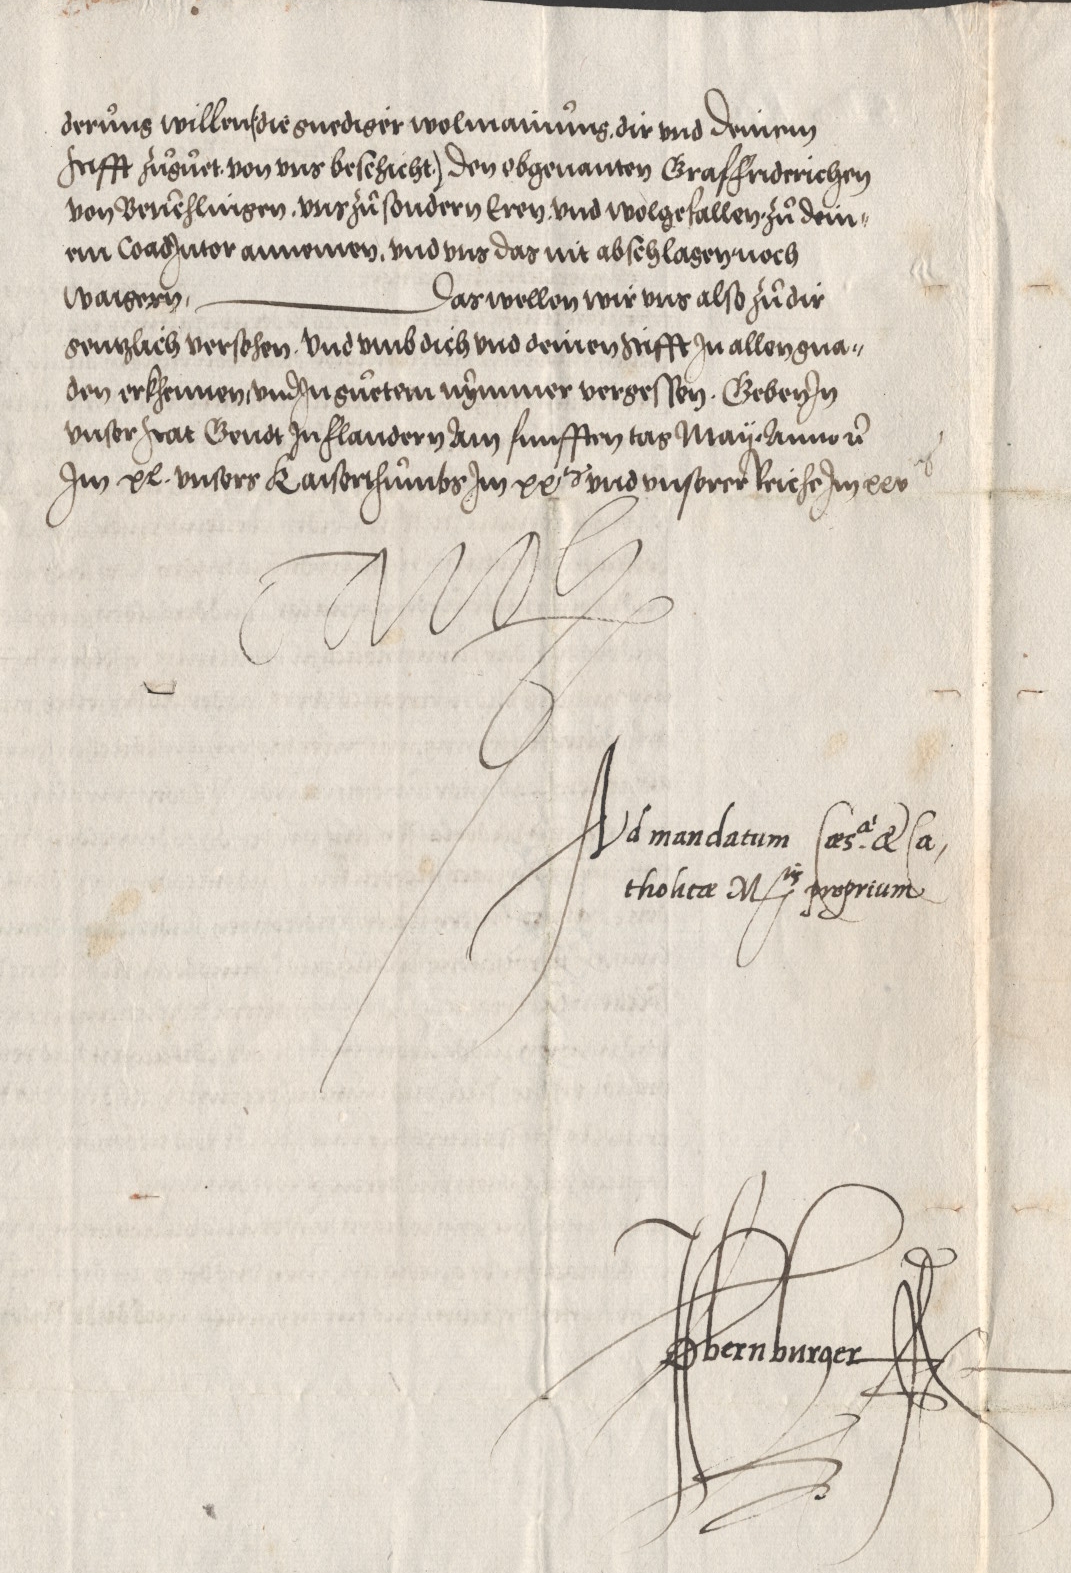 derůng willen (die gnediger wolmainůng, dir und deinem
stifft zůgůet von uns beschicht) den obgenanten Graf Friderichen
von Beuchlingen, uns zů sondern Eren, und wolgefallen, zů dein=
em CoadJutor annemen, und uns das nit abschlagen noch
waigern, Das wellen wir uns also zů dir
gentzlich versehen, Und umb dich und deinen stifft In allen gna=
den erkhennen, und In gůetem nÿmmer vergessen. Geben In
unser Stat Gendt In Flandern Am funfften tag Maÿ. Anno rc
Im XL. unsers Kaiserthůmbs Im XXten und unserer Reiche Im XXV
Carolus
Ad mandatum Caesae. & Ca,
tholicae Mtis proprium
Obernburger